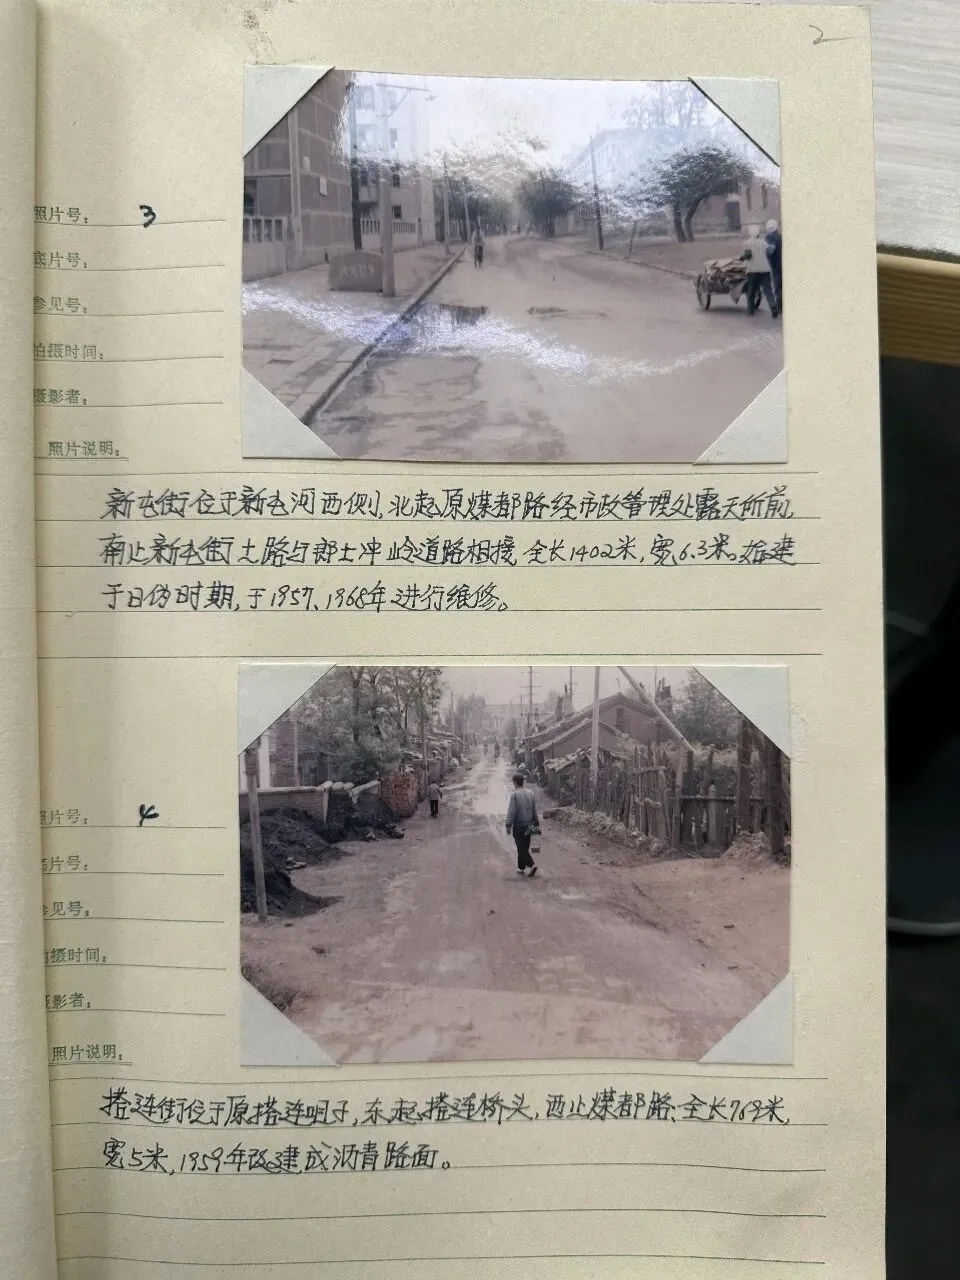 2
照片号: 3
底片号:
参见号:
拍摄时间:
摄影者:
照片说明:
新屯街位于新屯河西侧,北起原煤都路经市政管理处露天所前,
南止新屯街土路与郡士冲岭道路相接,全长1402米,宽6.3米。始建
于日伪时期,于1957、1968年进行维修。
照片号: 4
底片号:
参见号:
拍摄时间:
摄影者:
照片说明:
搭连街位于原搭连咀子,东起搭连桥头,西止煤都路、全长769米,
宽5米,1959年改建成沥青路面。